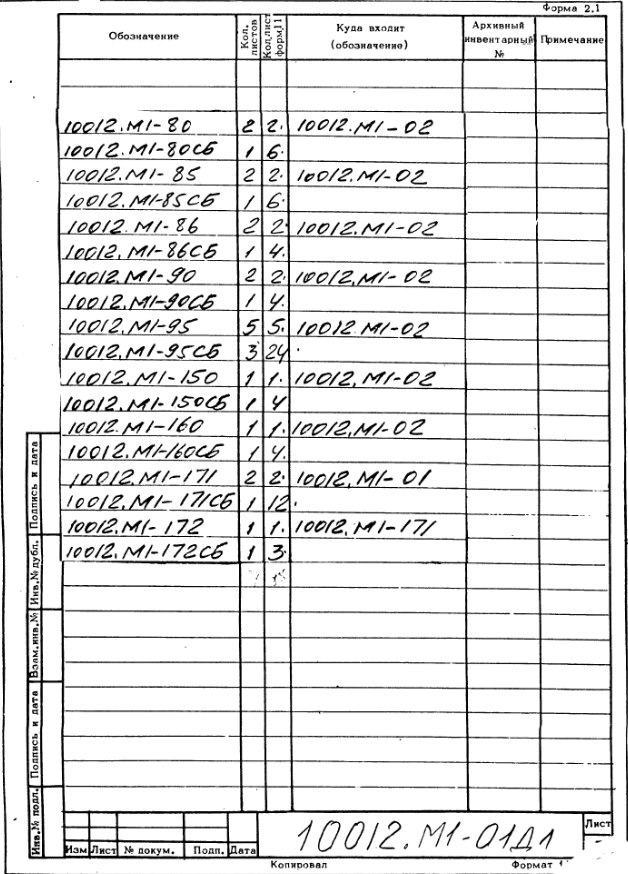 Форма 2.1
Обозначение Кол. листов Кол.лист форм.11 Куда входит (обозначение) Архивный инвентарный № Примечание
10012.М1-80 2 2. 10012.М1-02
10012.М1-80СБ 1 6.
10012.М1-85 2 2. 10012.М1-02
10012.М1-85СБ 1 6.
10012.М1-86 2 2 10012.М1-02
10012.М1-86СБ 1 4.
10012.М1-90 2 2. 10012.М1-02
10012.М1-90СБ 1 4.
10012.М1-95 5 5. 10012.М1-02
10012.М1-95СБ 3 24.
10012.М1-150 1 1. 10012.М1-02
10012.М1-150СБ 1 4
10012.М1-160 1 1. 10012.М1-02
10012.М1-160СБ 1 4.
10012.М1-171 2 2. 10012.М1-01
10012.М1-171СБ 1 12.
10012.М1-172 1 1. 10012.М1-171
10012.М1-172СБ 1 3.
Подпись и дата
Инв.№ дубл.
Взам.инв.№
Подпись и дата
Инв.№ подл.
10012.М1-01Д1
Лист
Изм Лист № докум. Подп. Дата
Копировал Формат